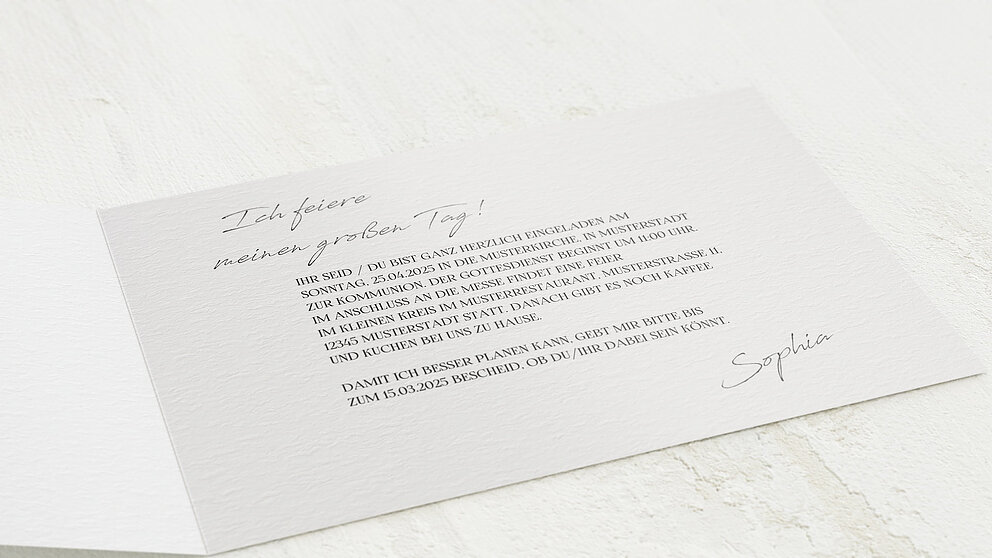 Ich feiere
meinen großen Tag!
IHR SEID / DU BIST GANZ HERZLICH EINGELADEN AM
SONNTAG, 25.04.2025 IN DIE MUSTERKIRCHE, IN MUSTERSTADT
ZUR KOMMUNION. DER GOTTESDIENST BEGINNT UM 11:00 UHR.
IM ANSCHLUSS AN DIE MESSE FINDET EINE FEIER
IM KLEINEN KREIS IM MUSTERRESTAURANT, MUSTERSTRASSE 11,
12345 MUSTERSTADT STATT. DANACH GIBT ES NOCH KAFFEE
UND KUCHEN BEI UNS ZU HAUSE.
DAMIT ICH BESSER PLANEN KANN, GEBT MIR BITTE BIS
ZUM 15.03.2025 BESCHEID, OB DU/IHR DABEI SEIN KÖNNT.
Sophia